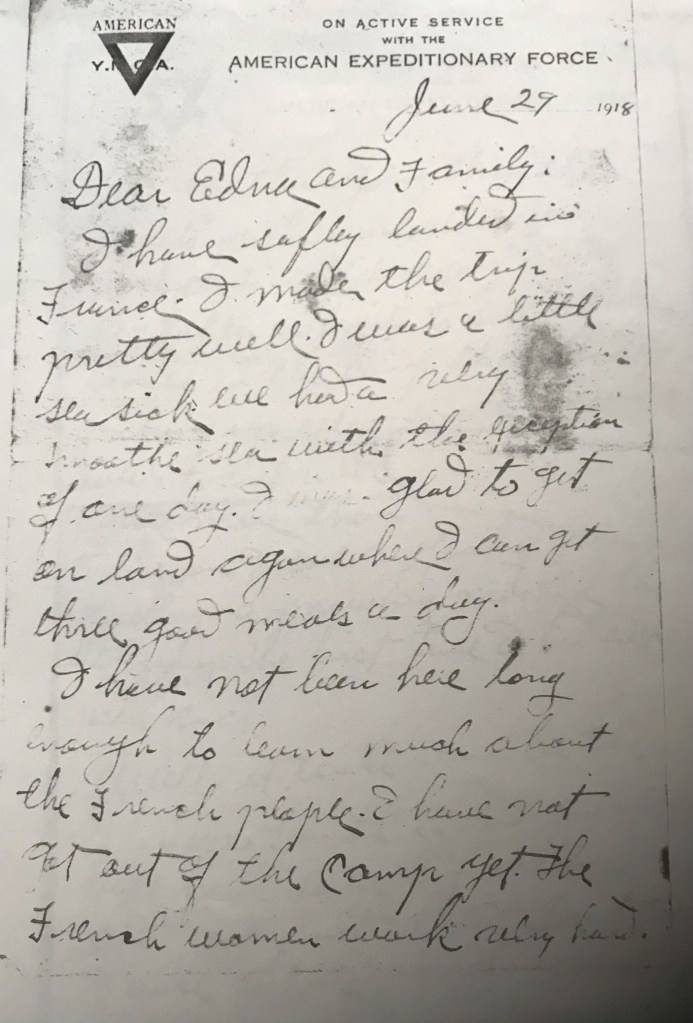 AMERICAN
Y.M.C.A.
ON ACTIVE SERVICE
WITH THE
AMERICAN EXPEDITIONARY FORCE
June 29 1918
Dear Edna and Family:
I have safley landed in
France. I made the trip
pretty well. I was a little
sea sick we had a very
smoothe sea with the exception
of one day. I was glad to get
on land agan where I can get
three good meals a day.
I have not been here long
enough to learn much about
the French people. I have not
got out of the Camp yet. The
French women work very hard.